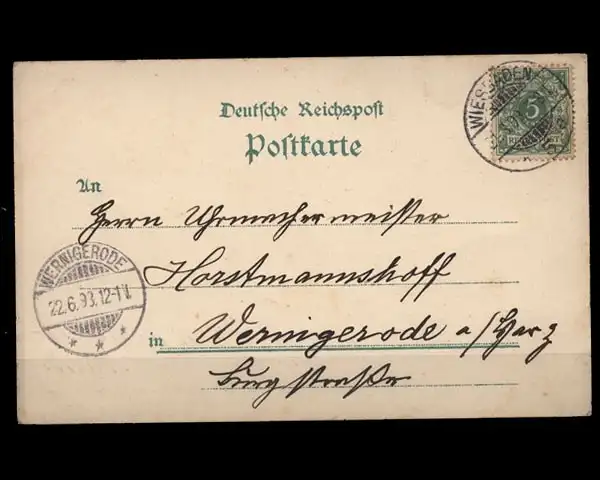 Deutsche Reichspost
Postkarte
WIESBADEN
5
An
Herrn Uhrmachermeister
Horstmannshoff
WERNIGERODE
22.6.93.12-1N.
in Wernigerode a/Harz
Burgstraße